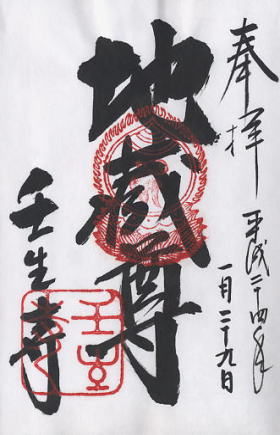 奉拝
平成二十四年
一月二十九日
地蔵尊
壬生寺